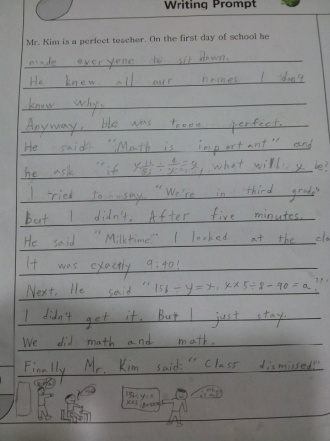 Writing Prompt
Mr. Kim is a perfect teacher. On the first day of school he
made everyone to sit down.
He knew all our names I don't
know why.
Anyway, He was toooo perfect.
He said "Math is important" and
he ask "if what will y be?
I tried to say "We're in third grade"
But I didn't. After five minutes.
He said "Milktime" I looked at the clo
It was exactly 9:40!
Next, He said "156-y=x. x×5÷8-90=a.
I didn't get it. But I just stay.
We did math and math.
Finally Mr. Kim said "Class dismissed"